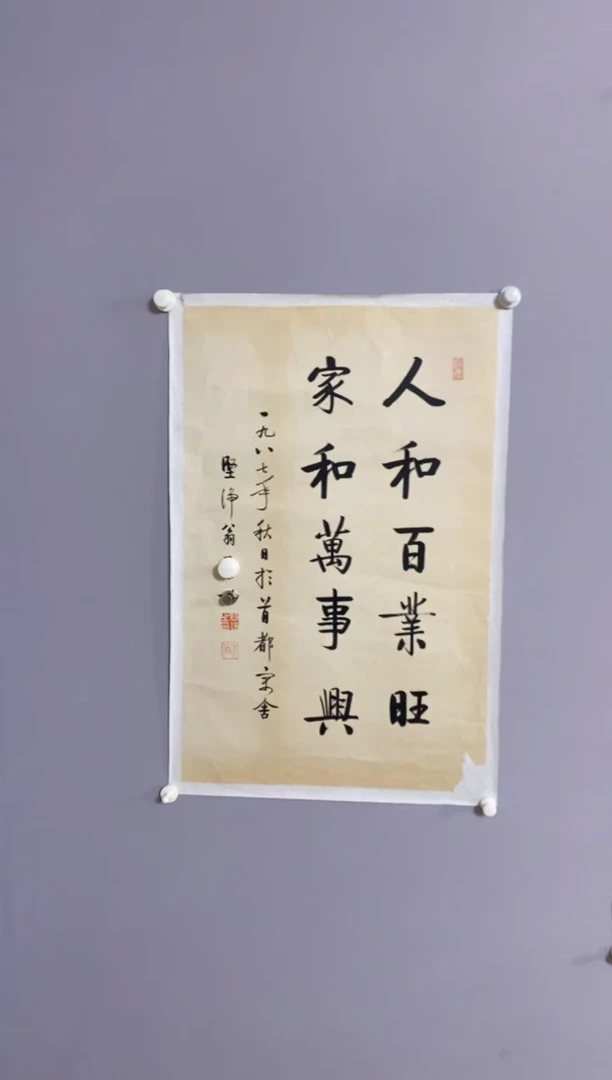 人和百業旺
家和萬事興
一九八七年秋日於首都寓舍
堅淨翁